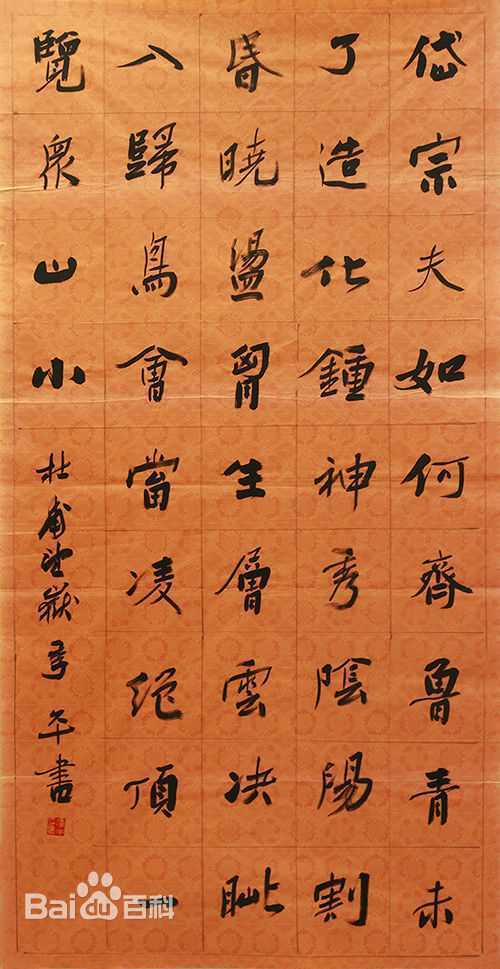 岱宗夫如何齊魯青未
了造化鍾神秀陰陽割
昏曉盪胷生層雲决眦
入歸鳥會當凌絕頂一
覽衆山小
杜甫望嶽 平書
Bai百科